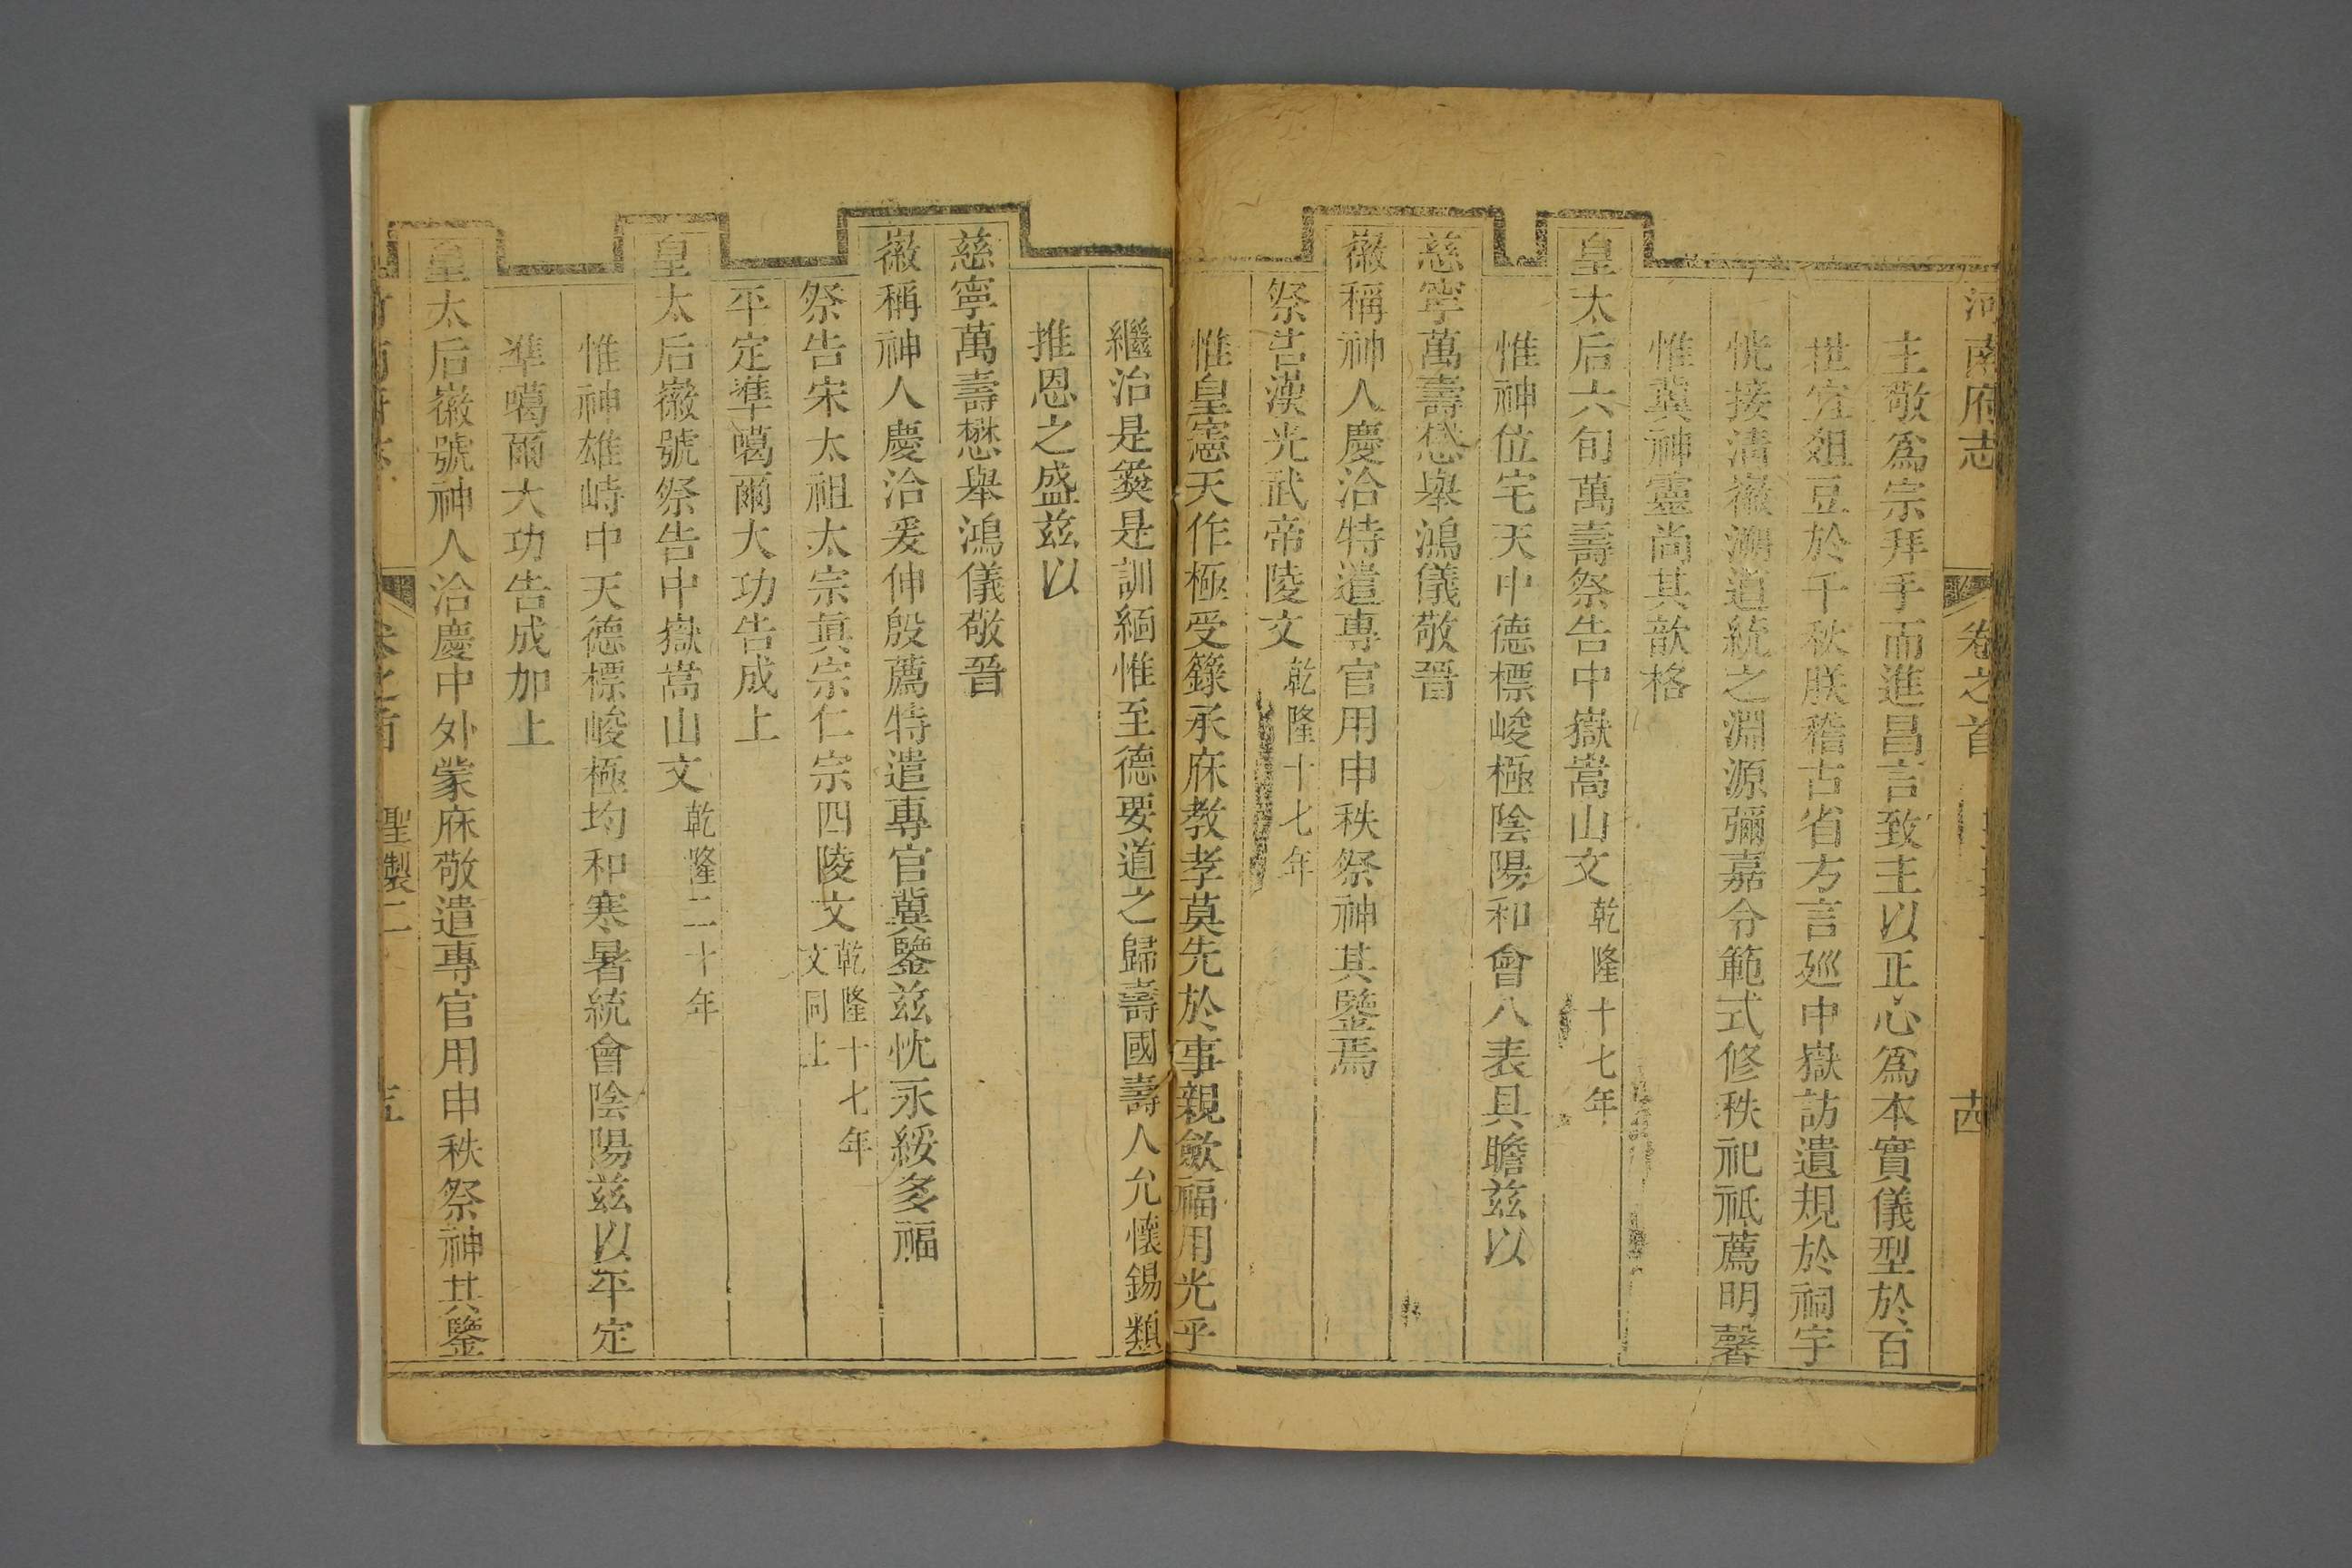 河南府志 卷之首 十四
主敬為宗拜手而進昌言致主以正心為本實儀型於百
世宜俎豆於千秋朕稽古省方言廵中嶽訪遺規於祠宇
恍接清徽溯道統之淵源彌嘉令範式修秩祀祗薦明馨
惟冀神靈尚其歆格
皇太后六旬萬壽祭告中嶽嵩山文乾隆十七年
惟神位宅天中德標峻極陰陽和會八表具瞻茲以
慈寧萬壽懋舉鴻儀敬晉
徽稱神人慶洽特遣專官用申秩祭神其鑒焉
祭告漢光武帝陵文乾隆十七年
惟皇憲天作極受籙承庥教孝莫先於事親斂福用光乎
繼治是彛是訓緬惟至德要道之歸壽國壽人允懷錫類
推恩之盛茲以
慈寧萬壽懋舉鴻儀敬晉
徽稱神人慶洽爰伸殷薦特遣專官冀鑒茲忱永綏多福
祭告宋太祖太宗真宗仁宗四陵文乾隆十七年文同上
平定準噶爾大功告成上
皇太后徽號祭告中嶽嵩山文乾隆二十年
惟神雄峙中天德標峻極均和寒暑統會陰陽茲以平定
準噶爾大功告成加上
皇太后徽號神人洽慶中外蒙庥敬遣專官用申秩祭神其鑒
卷之首 聖製二